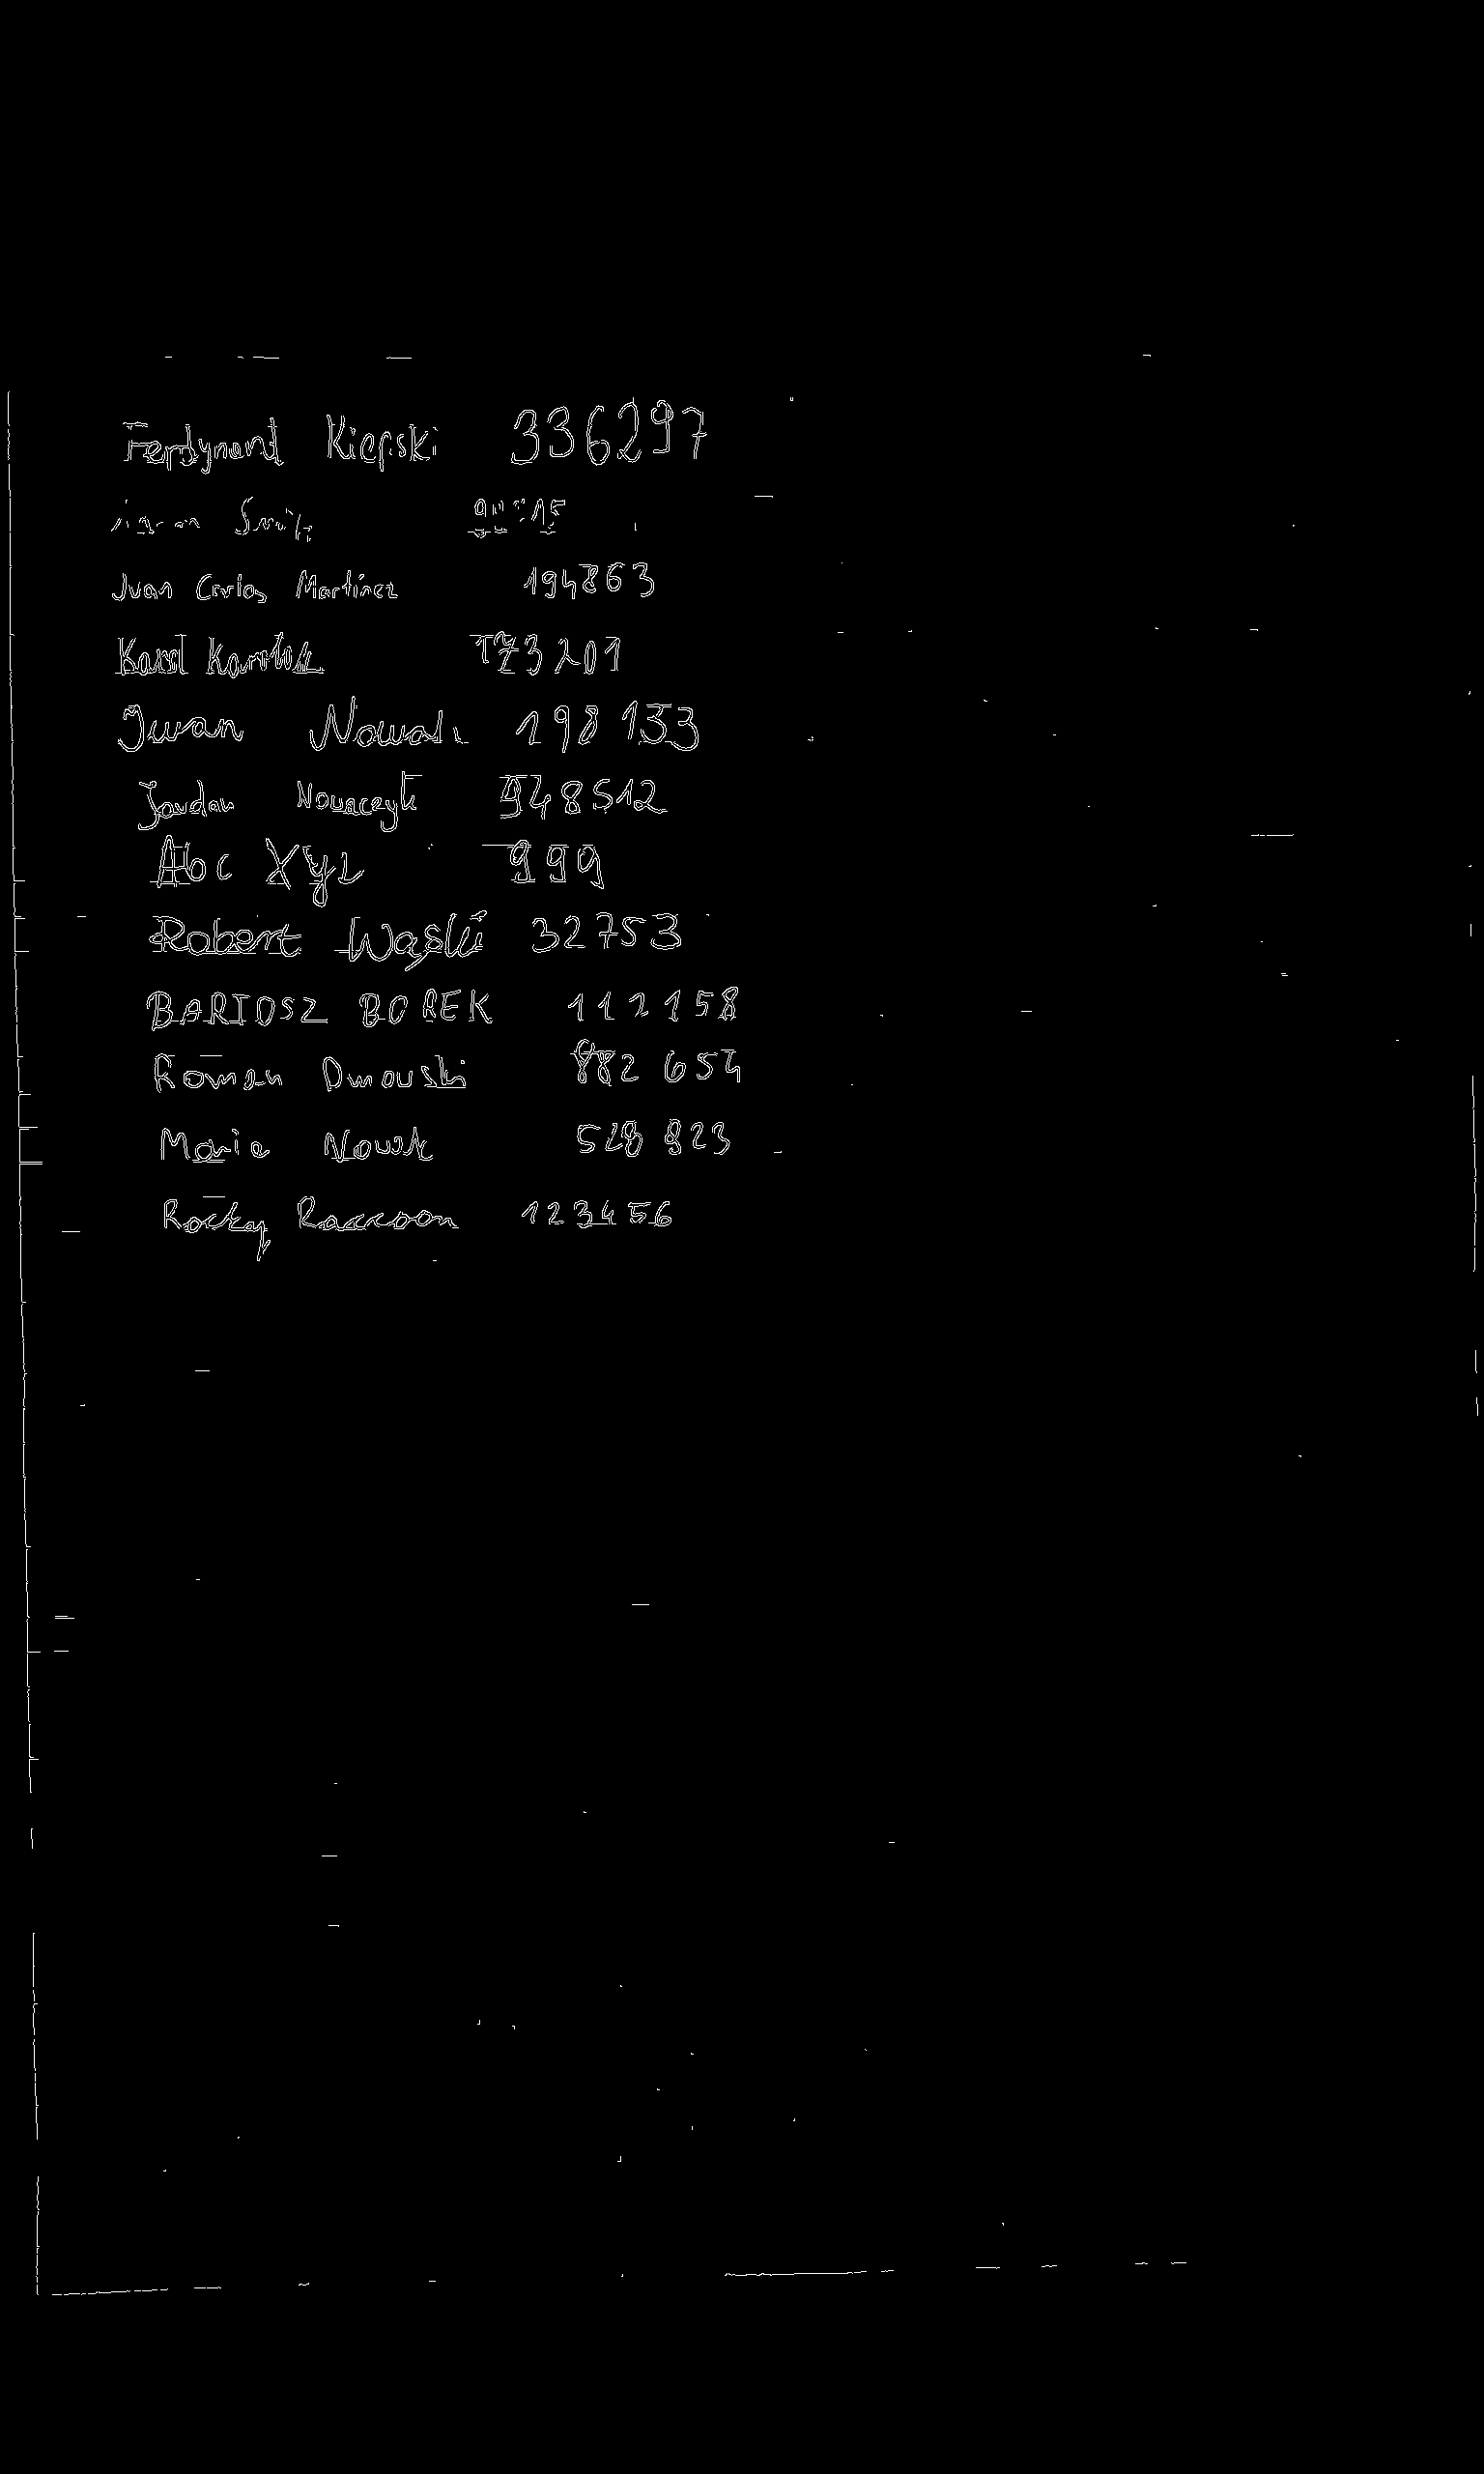 Ferdynant Kiepski 336297
Smith
Juan Carlos Martinez 194863
Karol Karolak 173201
Iwan Nowak 198133
Jordan Nowaczyk 948512
Abc Xyz 999
Robert Wąski 32753
BARTOSZ BOREK 112158
Roman Dmowski 882654
Maria Nowak 528823
Rocky Raccoon 123456